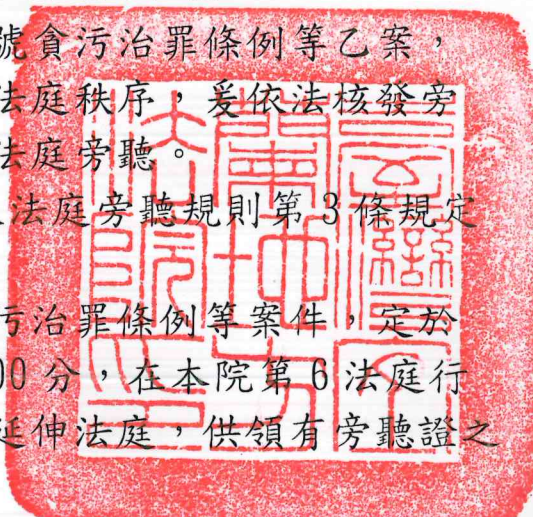 號貪污治罪條例等乙案，
法庭秩序，爰依法核發旁
法庭旁聽。
法庭旁聽規則第 3 條規定
污治罪條例等案件，定於
00 分，在本院第 6 法庭行
延伸法庭，供領有旁聽證之
臺灣
地方
法院印